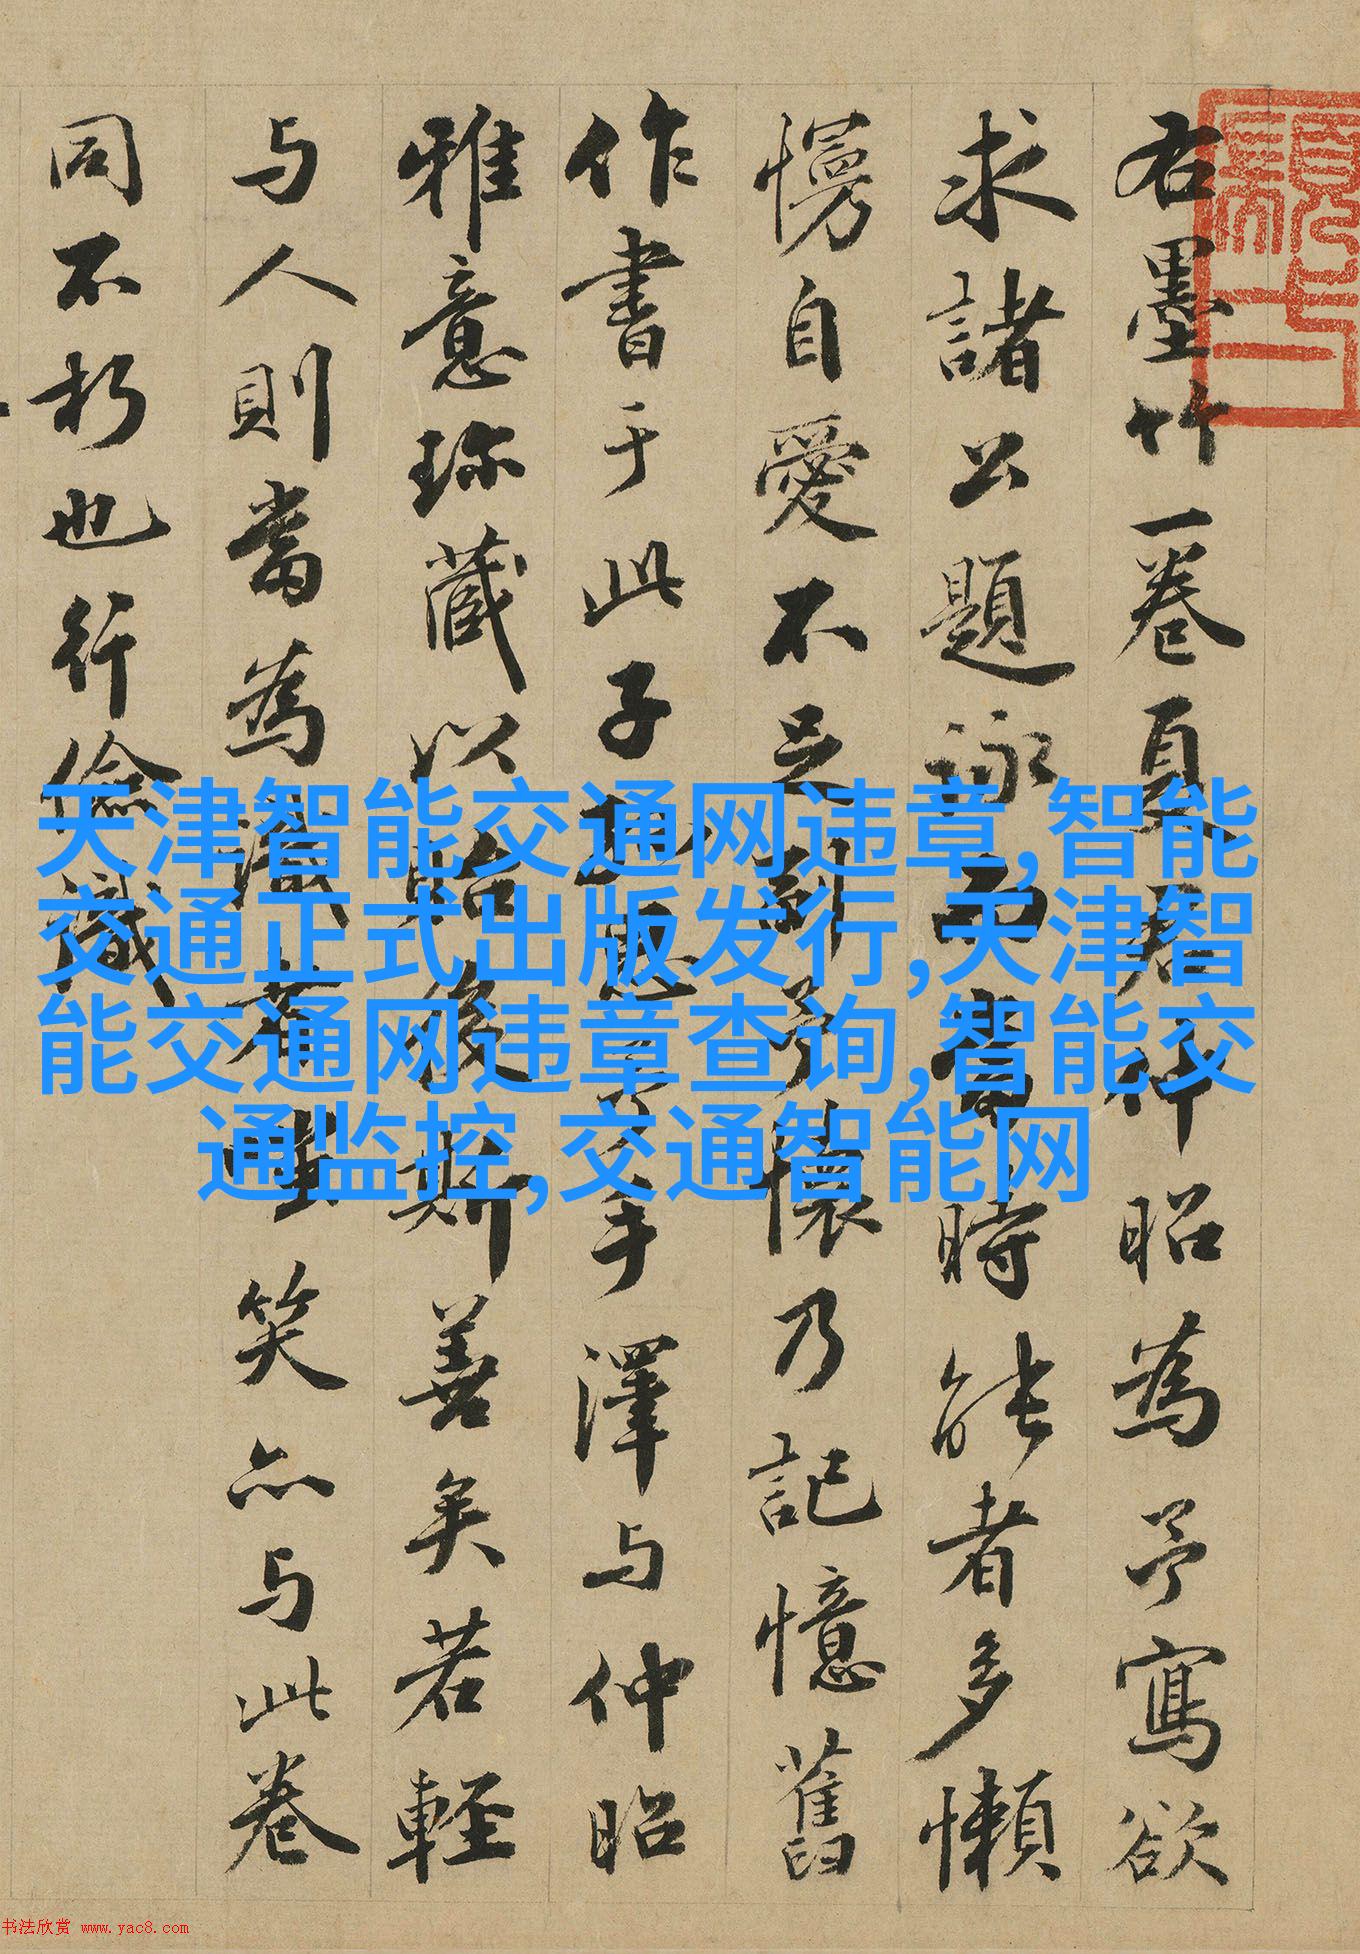 右墨竹一卷夏君仲昭為予寫欲
求諸公題詠而當時能者多懶
慢自愛不足副予懷乃記憶舊
作書于此子手澤与仲昭
雅意珍藏以貽後斯善矣若輕
与人則當為識者嗤笑亦与此卷
同不朽也行儉識
天津智能交通网违章,智能
交通正式出版发行,天津智
能交通网违章查询,智能交
通监控,交通智能网
书法欣赏 www.yac8.com